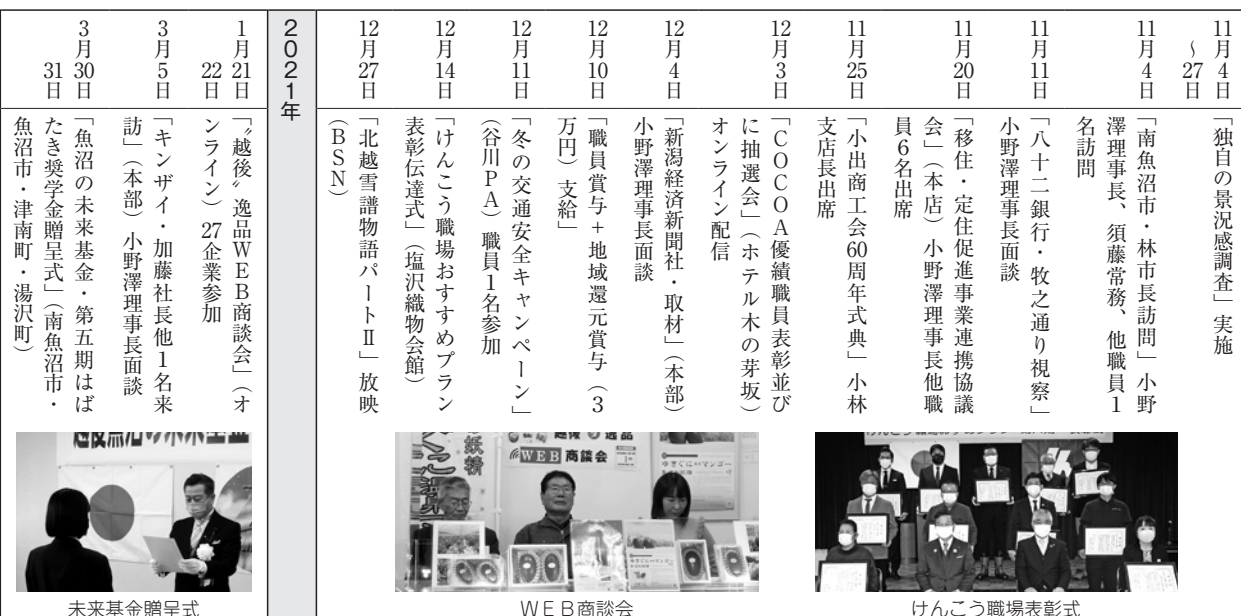 11月4日
〜27日
「独自の景況感調査」実施
11月4日
「南魚沼市・林市長訪問」小野
澤理事長、須藤常務、他職員1
名訪問
11月11日
「八十二銀行・牧之通り視察」
小野澤理事長面談
11月20日
「移住・定住促進事業連携協議
会」（本店）小野澤理事長他職
員6名出席
11月25日
「小出商工会60周年式典」小林
支店長出席
12月3日
「COCOA優績職員表彰並び
に抽選会」（ホテル木の芽坂）
オンライン配信
12月4日
「新潟経済新聞社・取材」（本部）
小野澤理事長面談
12月10日
「職員賞与+地域還元賞与（3
万円）支給」
12月11日
「冬の交通安全キャンペーン」
（谷川PA）職員1名参加
12月14日
「けんこう職場おすすめプラン
表彰伝達式」（塩沢織物会館）
12月27日
「北越雪譜物語パートⅡ」放映
（BSN）
2021年
1月21日
22日
「〝越後〟逸品WEB商談会」（オ
ンライン）27企業参加
3月5日
「キンザイ・加藤社長他1名来
訪」（本部）小野澤理事長面談
3月30日
31日
「魚沼の未来基金・第五期はば
たき奨学金贈呈式」（南魚沼市・
魚沼市・津南町・湯沢町）
けんこう職場表彰式
WEB商談会
越後 逸品
WEB商談会
ゆきぐにマンゴー
未来基金贈呈式